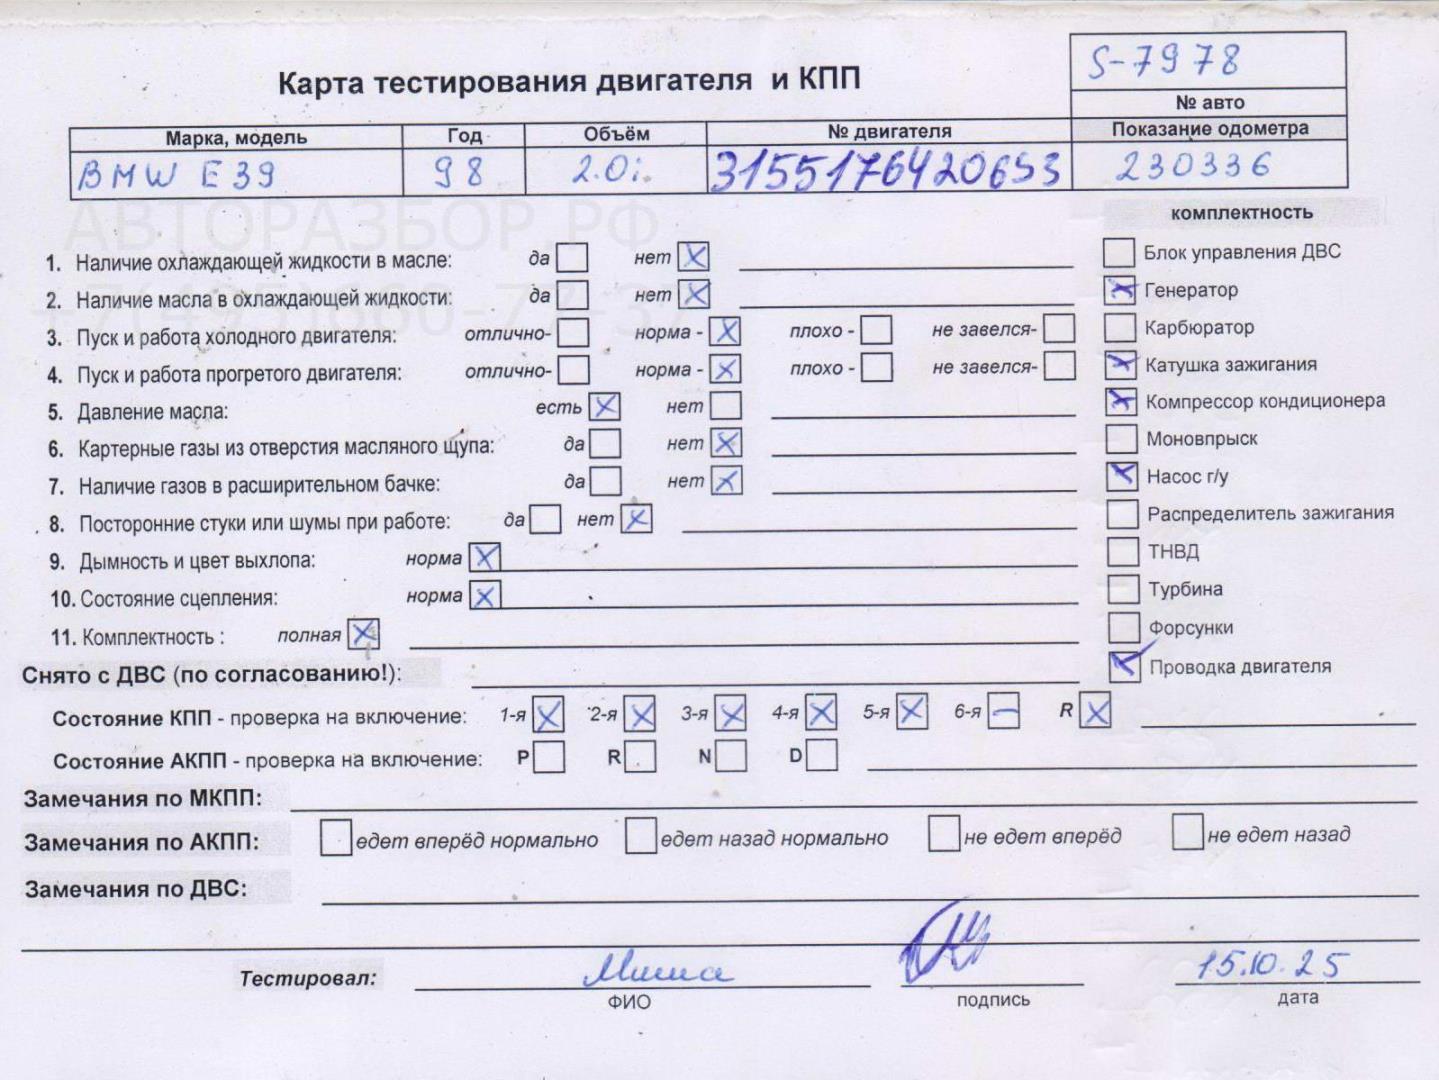 S-7978
Карта тестирования двигателя и КПП
№ авто
Марка, модель Год Объём № двигателя Показание одометра
BMW E39 98 2.0i 31551764420653 230336
АВТОРАЗБОР.РФ
комплектность
1. Наличие охлаждающей жидкости в масле: да нет X
Блок управления ДВС
2. Наличие масла в охлаждающей жидкости: да нет X
X Генератор
3. Пуск и работа холодного двигателя: отлично- норма - X плохо - не завелся-
Карбюратор
4. Пуск и работа прогретого двигателя: отлично- норма - X плохо - не завелся-
X Катушка зажигания
5. Давление масла: есть X нет
X Компрессор кондиционера
6. Картерные газы из отверстия масляного щупа: да нет X
Моновпрыск
7. Наличие газов в расширительном бачке: да нет X
X Насос г/у
8. Посторонние стуки или шумы при работе: да нет X
Распределитель зажигания
9. Дымность и цвет выхлопа: норма X
ТНВД
10. Состояние сцепления: норма X
Турбина
11. Комплектность : полная X
Форсунки
Снято с ДВС (по согласованию!):
X Проводка двигателя
Состояние КПП - проверка на включение: 1-я X 2-я X 3-я X 4-я X 5-я X 6-я – R X
Состояние АКПП - проверка на включение: P R N D
Замечания по МКПП:
Замечания по АКПП: едет вперёд нормально едет назад нормально не едет вперёд не едет назад
Замечания по ДВС:
Тестировал: Миша 15.10.25
ФИО подпись дата